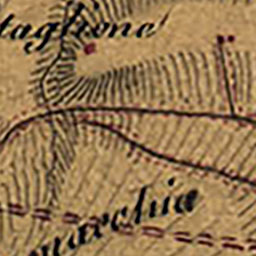 taglione
marchia